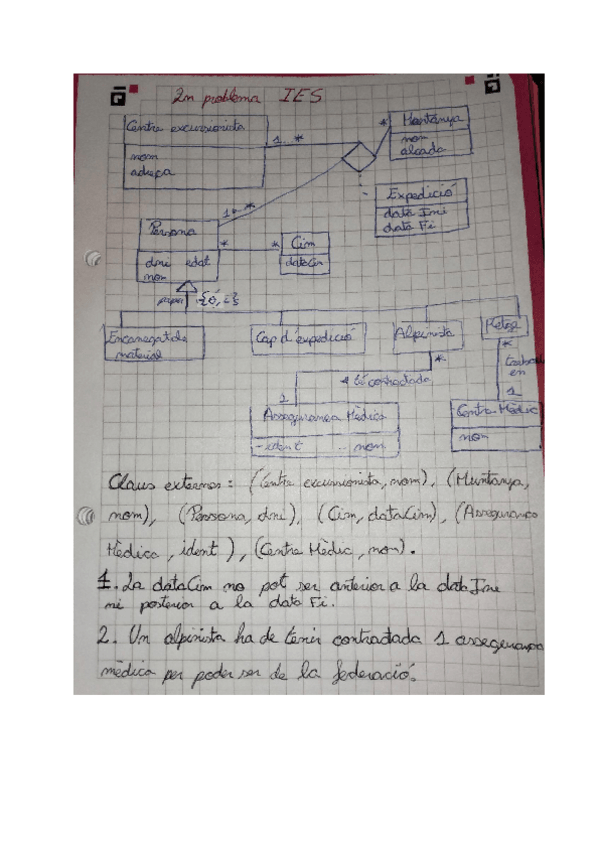 2n problema IES
Centre excursionista
nom
adreça
1..*
*
Muntanya
nom
alçada
Expedició
data Ini
data Fi
1..*
Persona
dni edat
nom
*
*
Cim
dataCim
paper
Encarregat de
material
Cap d'expedició
Alpinista
Metge
*
Treballa
en
1
*
té contractada
1
Assegurança Mèdica
ident nom
Centre Mèdic
nom
Claus externes: (Centre excursionista, nom), (Muntanya,
nom), (Persona, dni), (Cim, dataCim), (Assegurança
Mèdica, ident), (Centre Mèdic, nom).
1. La dataCim no pot ser anterior a la data Ini
ni posterior a la data Fi.
2. Un alpinista ha de tenir contractada 1 assegurança
mèdica per poder ser de la federació.